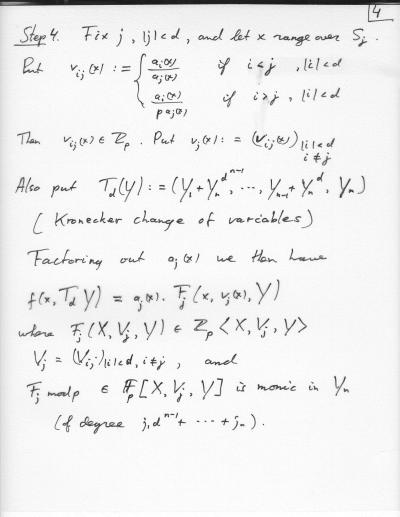 4
Step 4. Fix j, |j|<d, and let x range over S_j.
Put v_ij(x) := { a_i(x)/a_j(x) if i<j, |i|<d
a_i(x)/p a_j(x) if i>j, |i|<d
Then v_ij(x) ∈ Z_p. Put v_j(x) := (v_ij(x))_{|i|<d, i≠j}
Also put T_d(Y) := (Y_1+Y_n^{d^{n-1}}, ..., Y_{n-1}+Y_n^d, Y_n)
(Kronecker change of variables)
Factoring out a_j(x) we then have
f(x, T_d Y) = a_j(x). F_j(x, v_j(x), Y)
where F_j(X, V_j, Y) ∈ Z_p<X, V_j, Y>
V_j = (V_ij)_{|i|<d, i≠j}, and
F_j mod p ∈ F_p[X, V_j, Y] is monic in Y_n
(of degree j_1 d^{n-1} + ... + j_n).